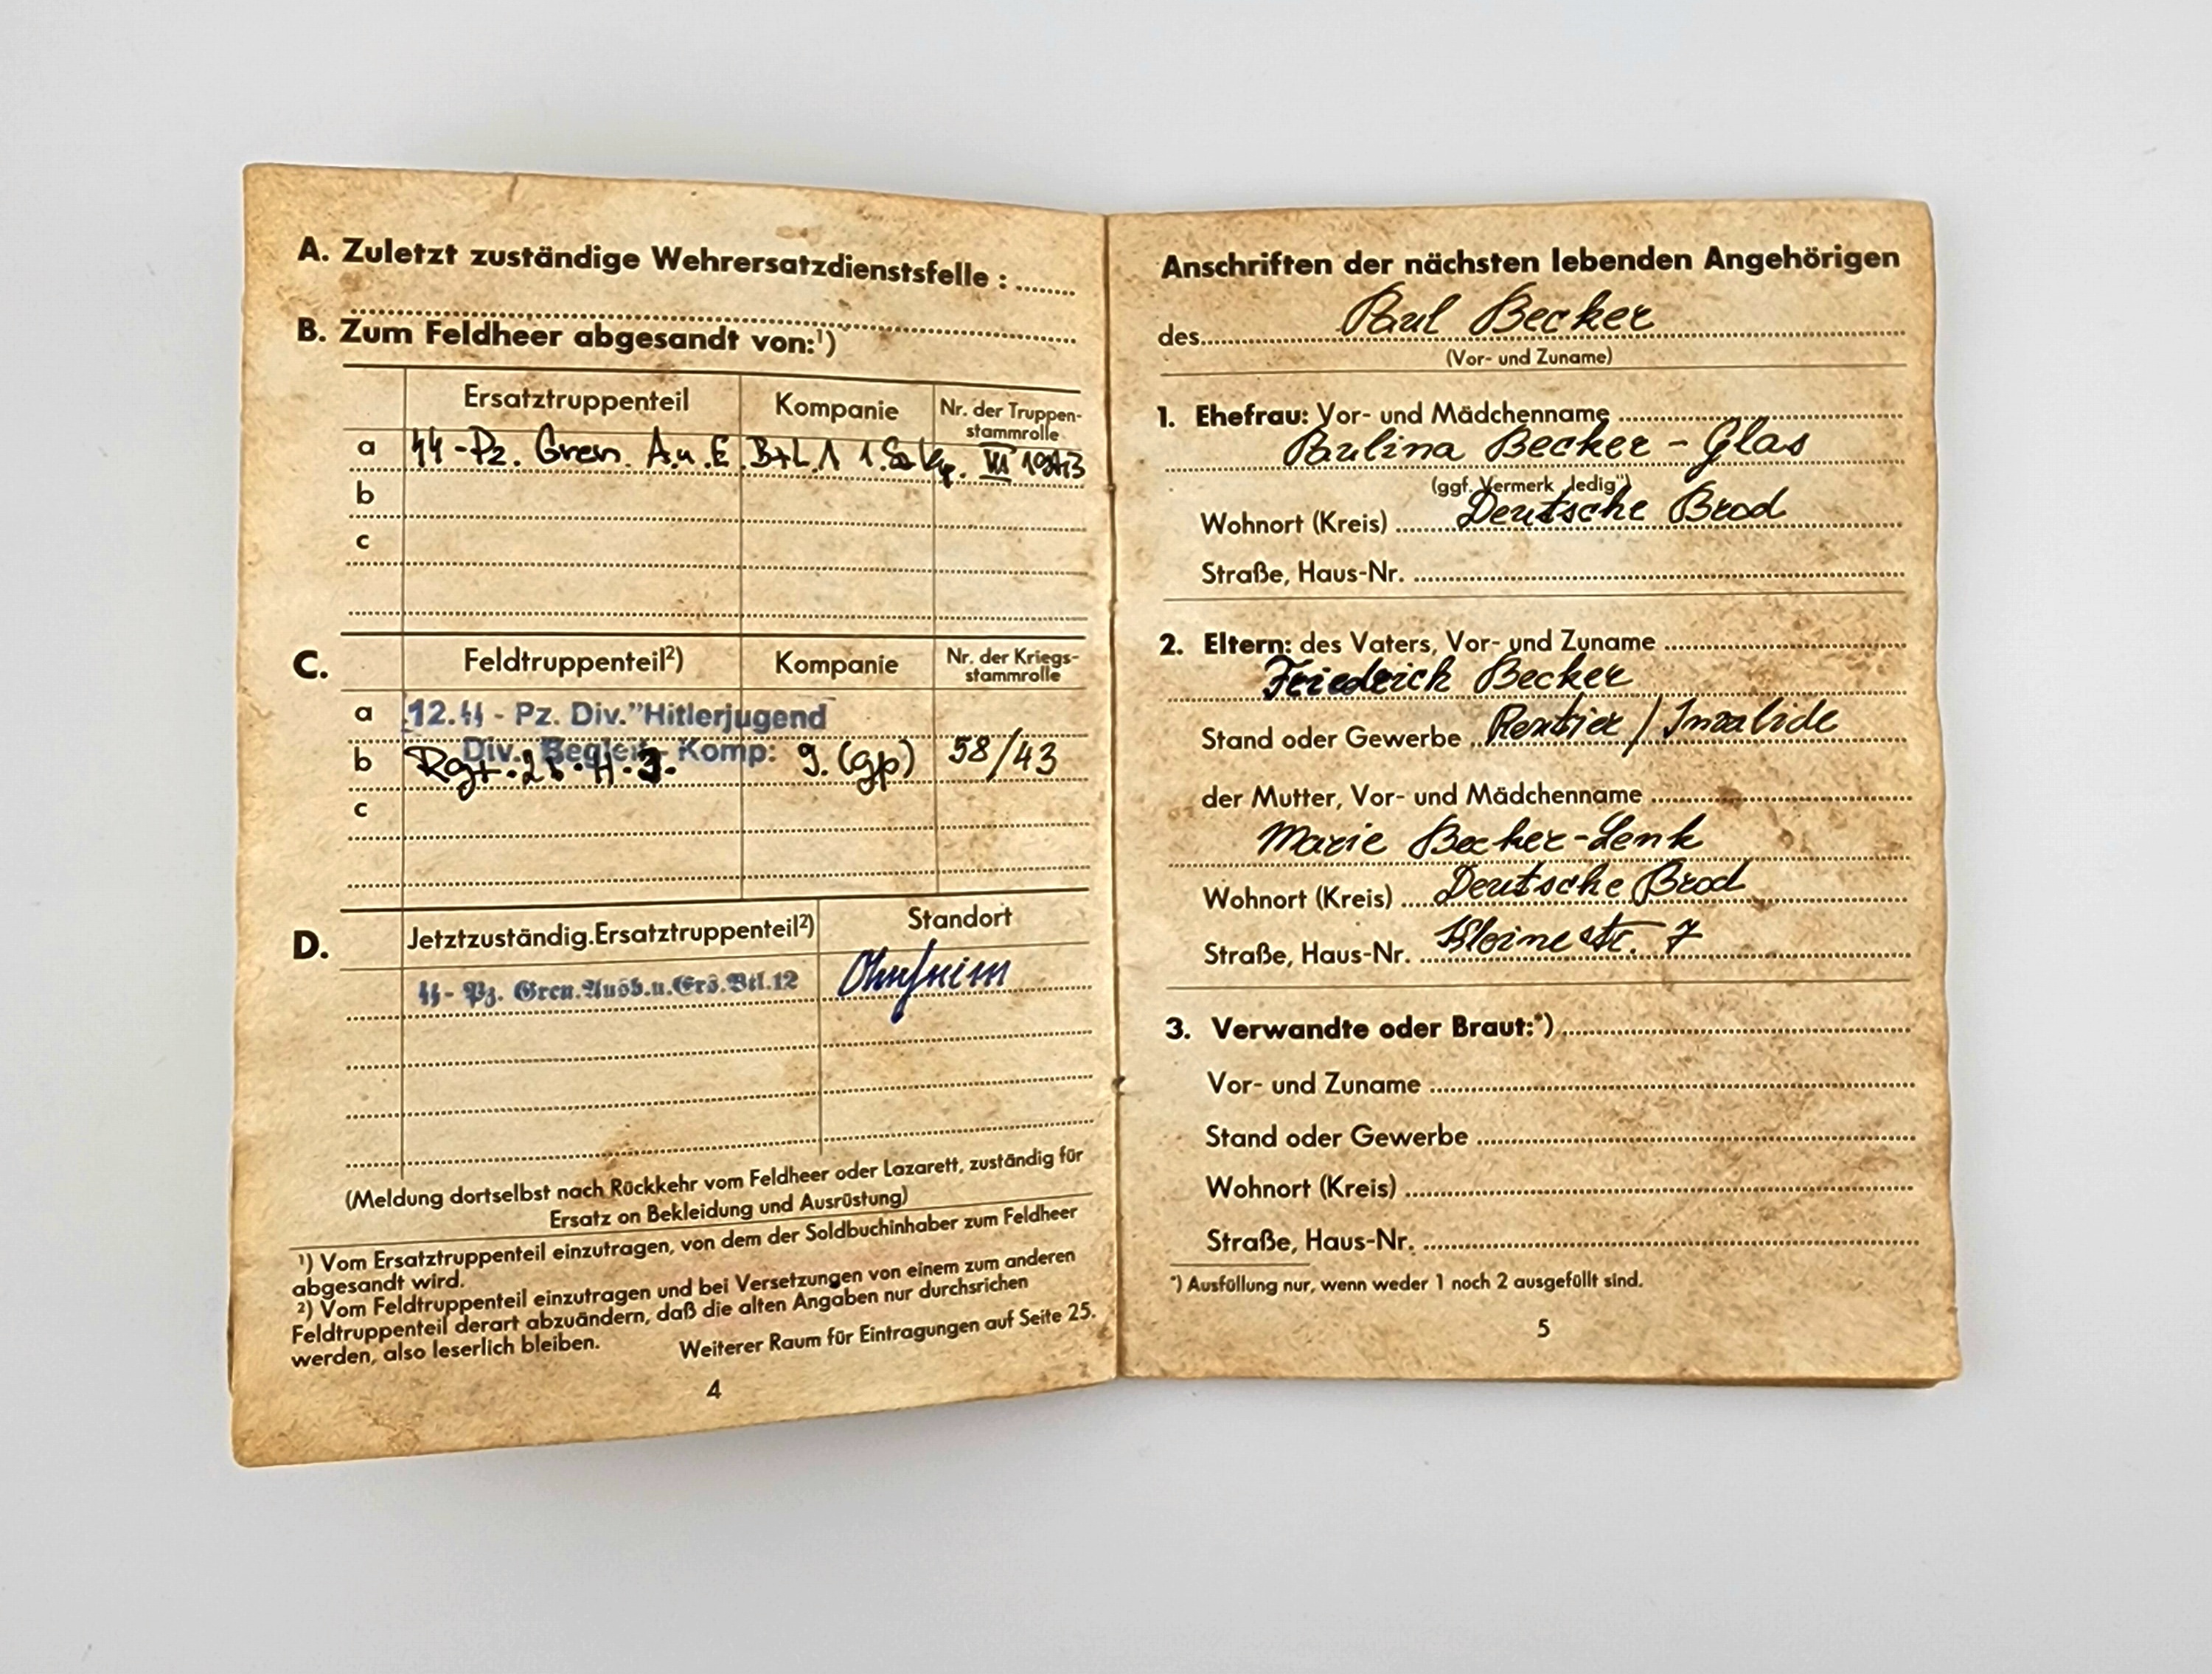 A. Zuletzt zuständige Wehrersatzdienstsfelle :
B. Zum Feldheer abgesandt von:¹)
Ersatztruppenteil Kompanie Nr. der Truppen-
stammrolle
a ᛋᛋ-Pz. Gren. A.u.E. Btl. 1 1. VII 1943
b
c
C. Feldtruppenteil²) Kompanie Nr. der Kriegs-
stammrolle
a 12.ᛋᛋ - Pz. Div."Hitlerjugend
Div. Begleit- Komp:
b Rgt. 9. (gp) 58/43
c
D. Jetztzuständig.Ersatztruppenteil²) Standort
ᛋᛋ- Pz. Gren.Ausb.u.Ers.Btl.12
(Meldung dortselbst nach Rückkehr vom Feldheer oder Lazarett, zuständig für
Ersatz on Bekleidung und Ausrüstung)
¹) Vom Ersatztruppenteil einzutragen, von dem der Soldbuchinhaber zum Feldheer
abgesandt wird.
²) Vom Feldtruppenteil einzutragen und bei Versetzungen von einem zum anderen
Feldtruppenteil derart abzuändern, daß die alten Angaben nur durchsrichen
werden, also leserlich bleiben. Weiterer Raum für Eintragungen auf Seite 25.
4
Anschriften der nächsten lebenden Angehörigen
des Paul Becker
(Vor- und Zuname)
1. Ehefrau: Vor- und Mädchenname
Paulina Becker - Glas
(ggf. Vermerk „ledig")
Wohnort (Kreis) Deutsche Brod
Straße, Haus-Nr.
2. Eltern: des Vaters, Vor- und Zuname
Friedrich Becker
Stand oder Gewerbe Rentier / Invalide
der Mutter, Vor- und Mädchenname
Marie Becker-Lenk
Wohnort (Kreis) Deutsche Brod
Straße, Haus-Nr. str. 7
3. Verwandte oder Braut:*)
Vor- und Zuname
Stand oder Gewerbe
Wohnort (Kreis)
Straße, Haus-Nr.
*) Ausfüllung nur, wenn weder 1 noch 2 ausgefüllt sind.
5